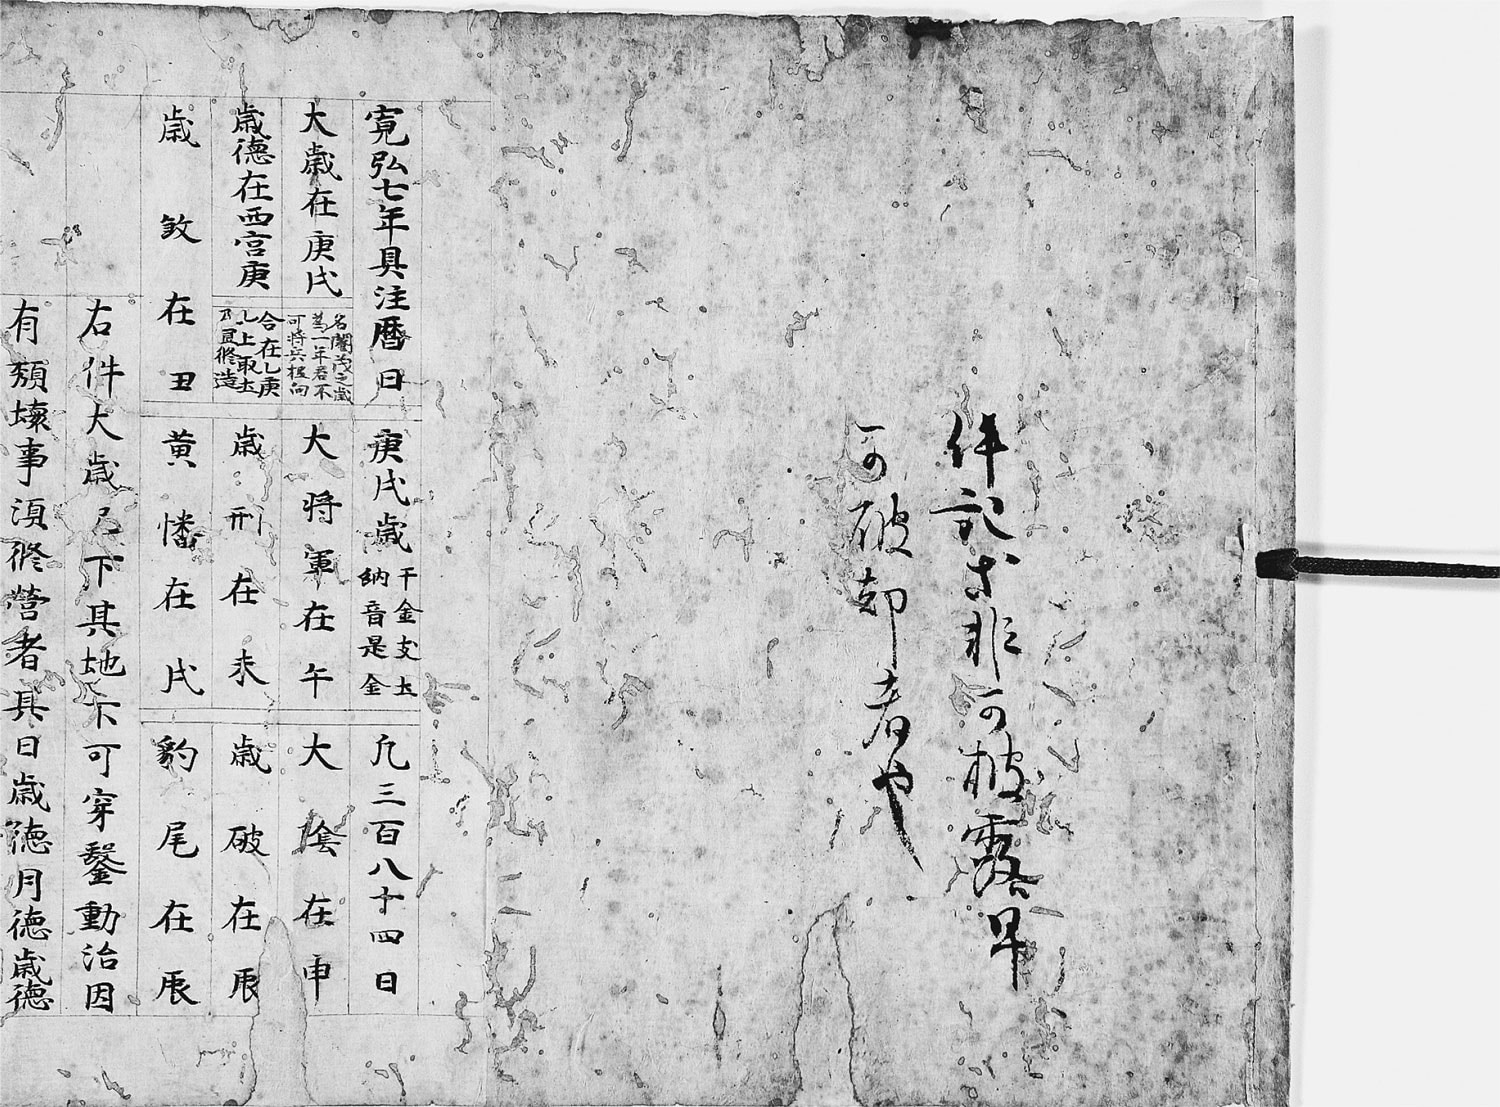 件記等非可披露早
可破却者也
寛弘七年具注暦日 庚戌歳 干金支土 納音是金 凢三百八十四日
大歳在庚戌 名閹茂之歳 為一年君不 可将兵抵向 大将軍在午 大陰在申
歳徳在西宮庚 合在乙庚 乙上取土 及宜修造 歳刑在未 歳破在辰
歳煞在丑 黄幡在戌 豹尾在辰
右件大歳已下其地不可穿鑿動治因
有頽壊事須修営者其日歳徳月徳歳徳